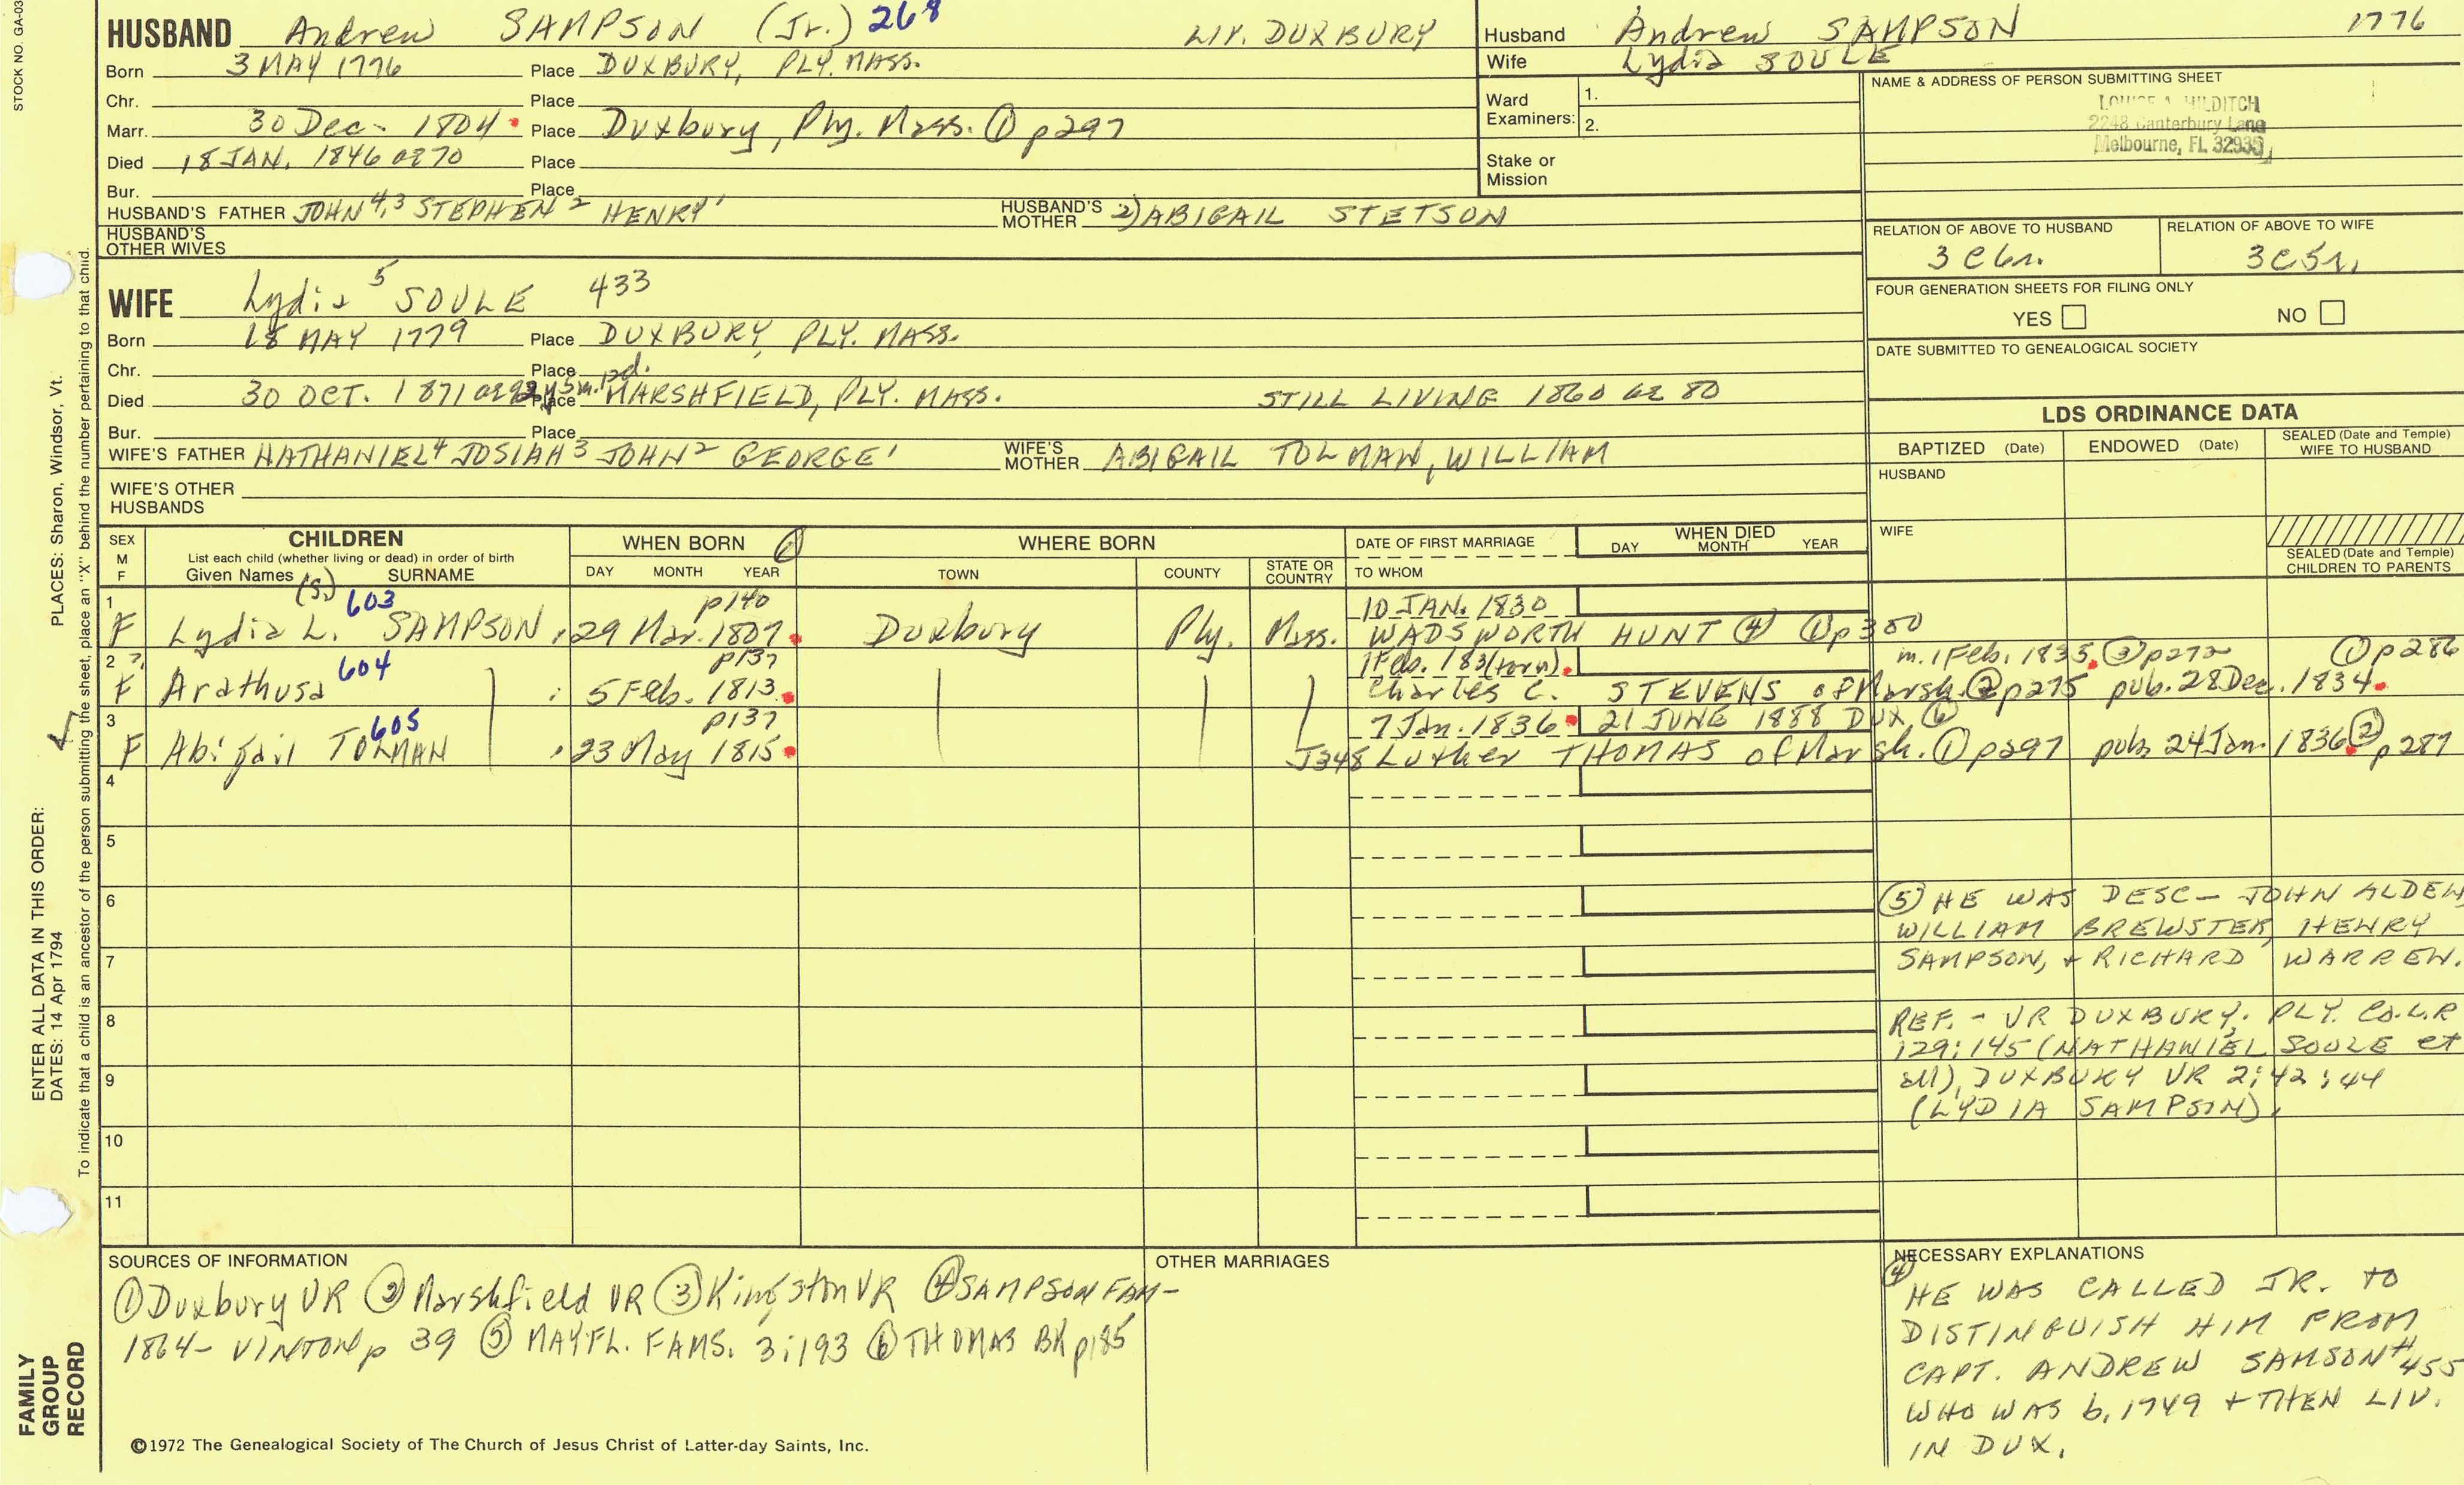 STOCK NO. GA-03
HUSBAND Andrew SAMPSON (Jr.) 268 LIV. DUXBURY
Born 3 MAY 1776 Place DUXBURY, PLY. MASS.
Chr. Place
Marr. 30 Dec - 1804 Place Duxbury, Ply. Mass. ① p297
Died 18 JAN. 1846 ae70 Place
Bur. Place
HUSBAND'S FATHER JOHN 4,3 STEPHEN 2 HENRY 1 HUSBAND'S MOTHER 2) ABIGAIL STETSON
HUSBAND'S OTHER WIVES
Husband Andrew SAMPSON 1776
Wife Lydia SOULE
Ward Examiners: 1.
2.
Stake or Mission
NAME & ADDRESS OF PERSON SUBMITTING SHEET
LOUISE A. HILDITCH
2248 Canterbury Lane
Melbourne, FL 32935
RELATION OF ABOVE TO HUSBAND RELATION OF ABOVE TO WIFE
3C6r. 3C5r.
FOUR GENERATION SHEETS FOR FILING ONLY
YES NO
DATE SUBMITTED TO GENEALOGICAL SOCIETY
WIFE Lydia 5 SOULE 433
Born 18 MAY 1779 Place DUXBURY, PLY. MASS.
Chr. Place
Died 30 OCT. 1871 ae92y5m. Place MARSHFIELD, PLY. MASS. STILL LIVING 1860 ae 80
Bur. Place
WIFE'S FATHER NATHANIEL 4 JOSIAH 3 JOHN 2 GEORGE 1 WIFE'S MOTHER ABIGAIL TOLMAN, WILLIAM
WIFE'S OTHER HUSBANDS
LDS ORDINANCE DATA
BAPTIZED (Date) ENDOWED (Date) SEALED (Date and Temple) WIFE TO HUSBAND
HUSBAND
WIFE
SEALED (Date and Temple) CHILDREN TO PARENTS
SEX M F CHILDREN WHEN BORN ⑥ WHERE BORN DATE OF FIRST MARRIAGE WHEN DIED
List each child (whether living or dead) in order of birth
Given Names SURNAME DAY MONTH YEAR TOWN COUNTY STATE OR COUNTRY TO WHOM DAY MONTH YEAR
1 (S.) 603 p140 10 JAN. 1830
F Lydia L. SAMPSON 29 Mar. 1807 Duxbury Ply. Mass. WADSWORTH HUNT ④ ① p300
2 ? 604 p137 1 Feb. 183(torn) m. 1 Feb. 1835 ③ p272 ① p286
F Arathusa 5 Feb. 1813 Charles C. STEVENS of Marsh. ② p275 pub. 28 Dec. 1834
3 605 p137 7 Jan. 1836 21 JUNE 1888 DUX. ⑥
F Abigail TOLMAN 23 May 1815 J348 Luther THOMAS of Marsh. ① p297 pub. 24 Jan. 1836 ② p287
4
5
6
7
8
9
10
11
⑤ HE WAS DESC - JOHN ALDEN,
WILLIAM BREWSTER, HENRY
SAMPSON, + RICHARD WARREN.
REF. - VR DUXBURY; PLY. CO. L.R
129:145 (NATHANIEL SOULE et
all), DUXBURY VR 2:42:44
(LYDIA SAMPSON).
SOURCES OF INFORMATION
① Duxbury VR ② Marshfield VR ③ Kingston VR ④ SAMPSON FAM-
1864 - VINTON p 39 ⑤ MAYFL. FAMS. 3:193 ⑥ THOMAS BK p185
OTHER MARRIAGES
NECESSARY EXPLANATIONS
④ HE WAS CALLED JR. TO
DISTINGUISH HIM FROM
CAPT. ANDREW SAMSON #455
WHO WAS b. 1749 + THEN LIV.
IN DUX.
©1972 The Genealogical Society of The Church of Jesus Christ of Latter-day Saints, Inc.
FAMILY GROUP RECORD
ENTER ALL DATA IN THIS ORDER:
DATES: 14 Apr 1794 PLACES: Sharon, Windsor, Vt.
To indicate that a child is an ancestor of the person submitting the sheet, place an "X" behind the number pertaining to that child.